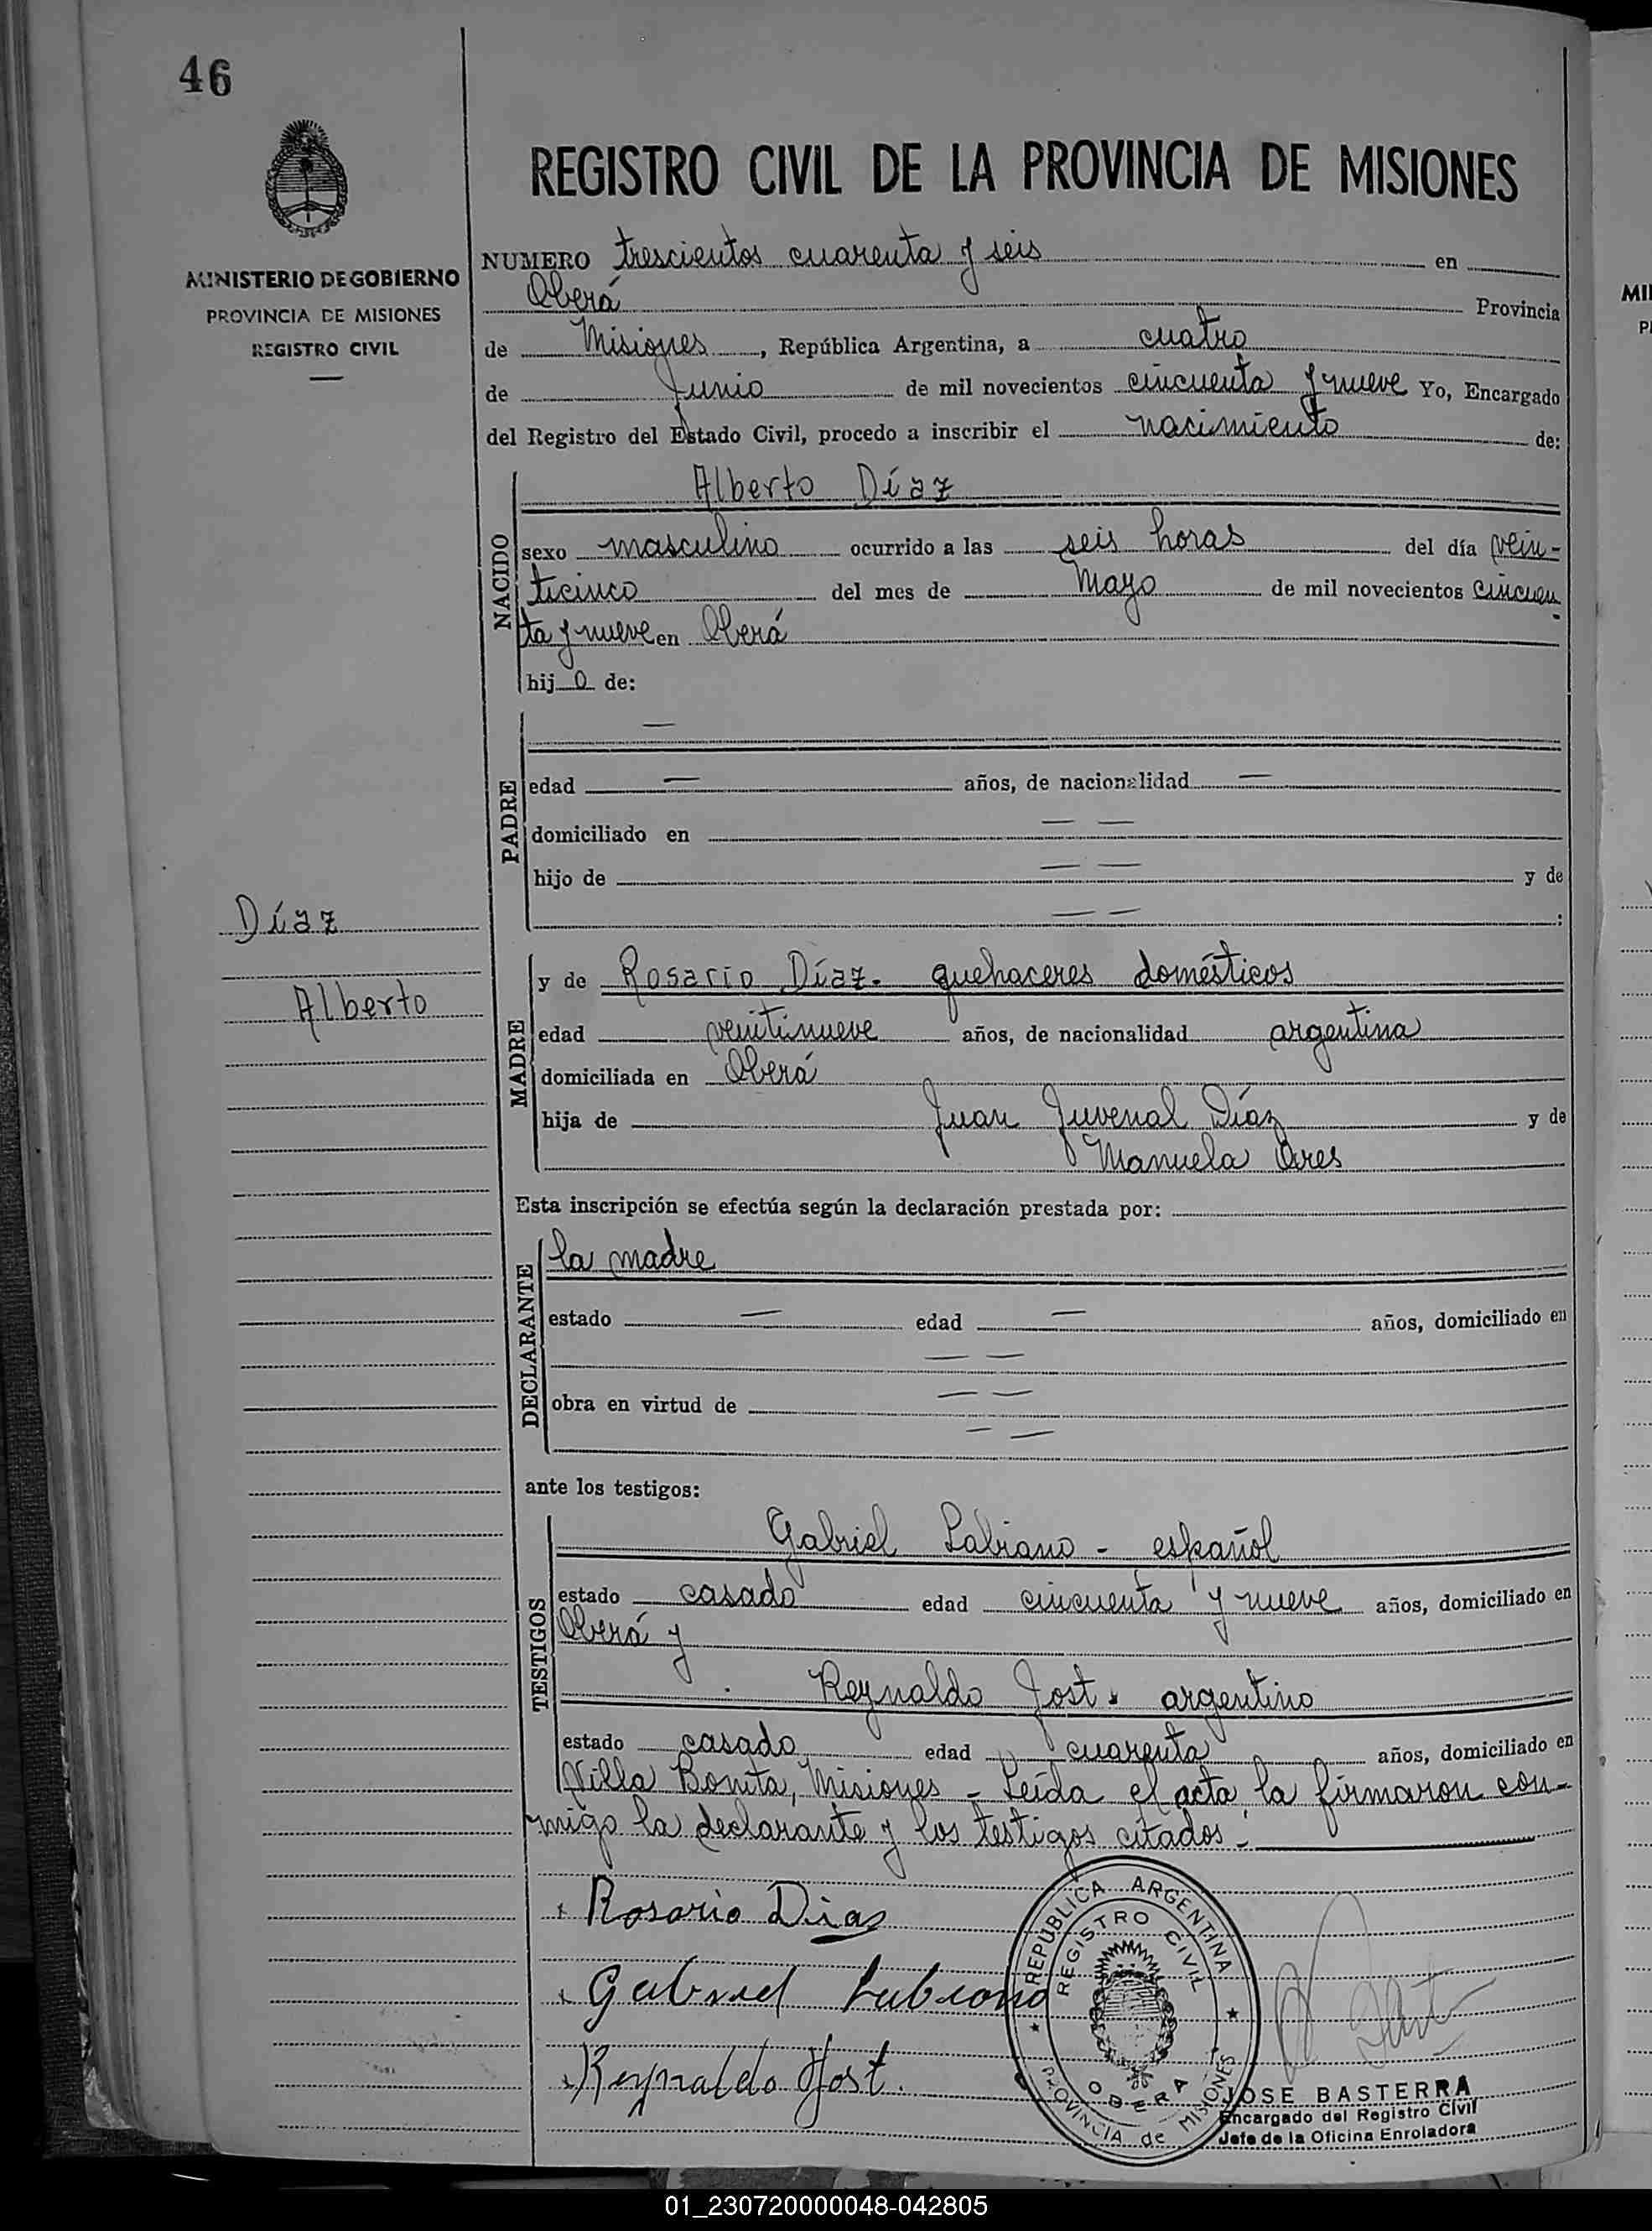 46
REGISTRO CIVIL DE LA PROVINCIA DE MISIONES
MINISTERIO DE GOBIERNO
PROVINCIA DE MISIONES
REGISTRO CIVIL
NUMERO trescientos cuarenta y seis en
Oberá Provincia
de Misiones, República Argentina, a cuatro
de Junio de mil novecientos cincuenta y nueve Yo, Encargado
del Registro del Estado Civil, procedo a inscribir el nacimiento de:
NACIDO
Alberto Díaz
sexo masculino ocurrido a las seis horas del día vein-
ticinco del mes de Mayo de mil novecientos cincuen-
ta y nueve en Oberá
hijo de:
PADRE
—
edad — años, de nacionalidad —
domiciliado en — —
hijo de — — y de
— — :
Díaz
Alberto
MADRE
y de Rosario Díaz. quehaceres domésticos
edad veintinueve años, de nacionalidad argentina
domiciliada en Oberá
hija de Juan Juvenal Díaz y de
Manuela
Esta inscripción se efectúa según la declaración prestada por:
DECLARANTE
la madre
estado — edad — años, domiciliado en
— —
obra en virtud de — —
— —
ante los testigos:
TESTIGOS
Gabriel Labiano - español
estado casado edad cincuenta y nueve años, domiciliado en
Oberá y
Reynaldo Jost. argentino
estado casado edad cuarenta años, domiciliado en
Villa Bonita, Misiones - Leída el acta la firmaron con-
migo la declarante y los testigos citados.-
Rosario Dias
Gabriel Labiano
Reynaldo Jost.
REPUBLICA ARGENTINA
REGISTRO CIVIL
OBERA
PROVINCIA de MISIONES
JOSE BASTERRA
Encargado del Registro Civil
Jefe de la Oficina Enroladora
01_230720000048-042805